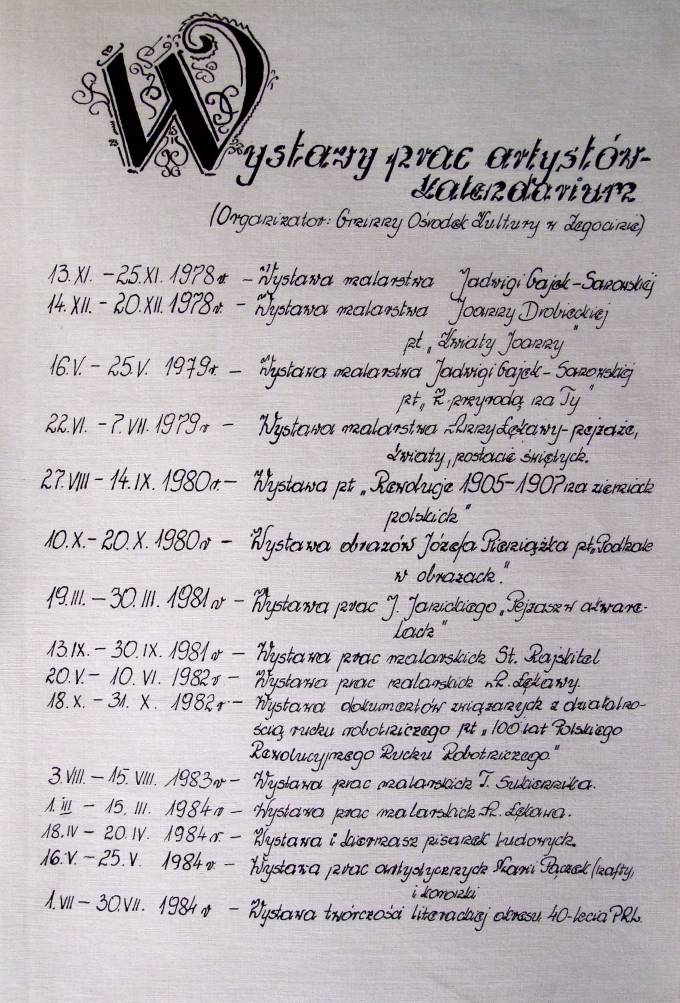 Wystawy prac artystów-
kalendarium
(Organizator: Gminny Ośrodek Kultury w Żegocinie)
13.XI. – 25.XI. 1978r – Wystawa malarstwa Jadwigi Gajek-Sanowskiej
14.XII. – 20.XII. 1978r. – Wystawa malarstwa Joanny Drobieckiej
pt „Kwiaty Joanny"
16.V. – 25.V. 1979r. – Wystawa malarstwa Jadwigi Gajek-Sanowskiej
pt „Z przyrodą na Ty"
22.VI. – 7.VII. 1979r – Wystawa malarstwa Anny Łękawy – pejzaże,
kwiaty, postacie świętych.
27.VIII – 14.IX. 1980r. – Wystawa pt „Rewolucje 1905–1907 na ziemiach
polskich"
10.X. – 20.X. 1980r – Wystawa obrazów Józefa Pieniążka pt. „Podhale
w obrazach".
19.III. – 30.III. 1981r – Wystawa prac J. Janickiego „Pejzasz w akware-
lach"
13.IX. – 30.IX. 1981r – Wystawa prac malarskich St. Rajskitel
20.V. – 10.VI. 1982r – Wystawa prac malarskich A. Łękawy.
18.X. – 31.X. 1982r – Wystawa dokumentów związanych z działalno-
ścią ruchu robotniczego pt „100 lat Polskiego
Rewolucyjnego Ruchu Robotniczego"
3.VIII. – 15.VIII. 1983r – Wystawa prac malarskich T. Sukiennika.
1.III – 15.III. 1984r – Wystawa prac malarskich A. Łękawa.
18.IV – 20.IV. 1984r. – Wystawa i kiermasz pisanek ludowych.
16.V. – 25.V. 1984r. – Wystawa prac artystycznych Marii Pączek (hafty,
i koronki
1.VII – 30.VII. 1984r – Wystawa twórczości literackiej okresu 40-lecia PRL.